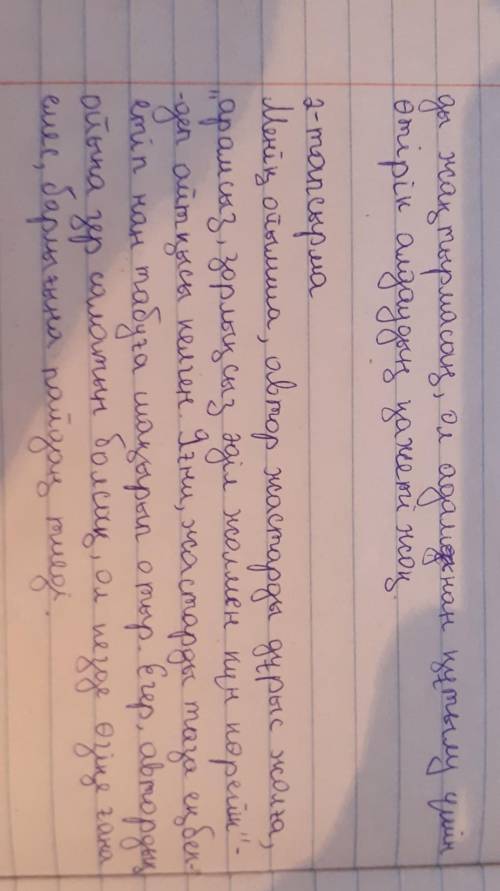 ды жақтырмасаң, ол адамнан құтылу үшін
өтірік алдаудың қажеті жоқ.
2-тапсырма
Менің ойымша, автор жастарды дұрыс жолға,
"арамсыз, зорлықсыз әділ жолмен күн көрейік"-
-деп айтқысы келген. Яғни, жастарды таза еңбек-
етіп нан табуға шақырып отыр. Егер, автордың
ойына зер салатын болсақ, ол кезде өзіңе ғана
емес, барлығына пайдаң тиеді.